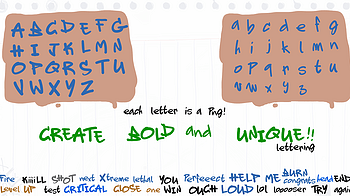 A B C D E F G
H I J K L M N
O P Q R S T U
V W X Y Z
a b c d e f g
h i j k l m n
o p q r s t u
v w x y z
each letter is a Png!
CREATE BOLD and UNIQUE!!
lettering
Fire Kiiill SHOT next Xtreme lethal YOU Perfeeect HELP ME BURN congrats head END
Level UP test CRITICAL CLOSE one WIN OUCH LOUD lol looooser TRY again